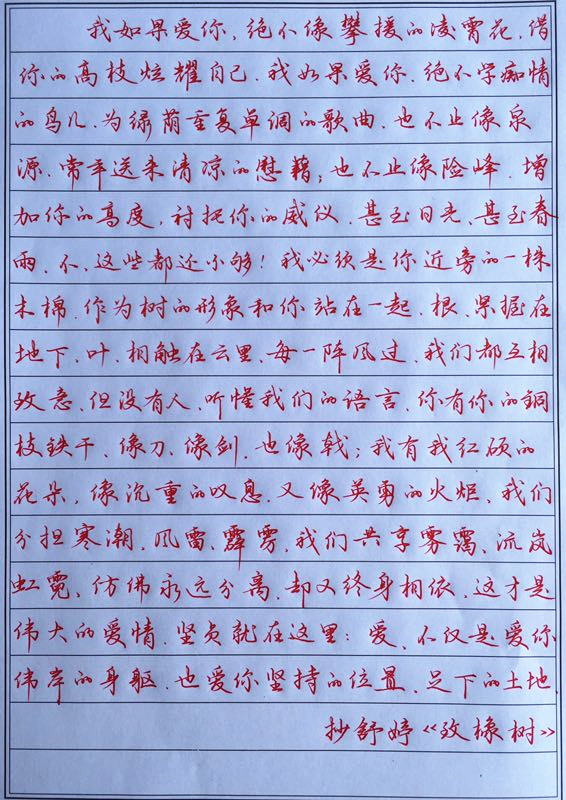 我如果爱你，绝不像攀援的凌霄花，借
你的高枝炫耀自己．我如果爱你．绝不学痴情
的鸟儿．为绿荫重复单调的歌曲．也不止像泉
源．常年送来清凉的慰藉；也不止像险峰．增
加你的高度，衬托你的威仪．甚至日光．甚至春
雨．不．这些都还不够！我必须是你近旁的一株
木棉．作为树的形象和你站在一起．根．紧握在
地下．叶．相触在云里．每一阵风过．我们都互相
致意．但没有人．听懂我们的语言．你有你的铜
枝铁干．像刀．像剑．也像戟；我有我红硕的
花朵．像沉重的叹息．又像英勇的火炬．我们
分担寒潮．风雷．霹雳．我们共享雾霭．流岚
虹霓．仿佛永远分离．却又终身相依．这才是
伟大的爱情．坚贞就在这里：爱．不仅是爱你
伟岸的身躯．也爱你坚持的位置．足下的土地．
抄舒婷《致橡树》